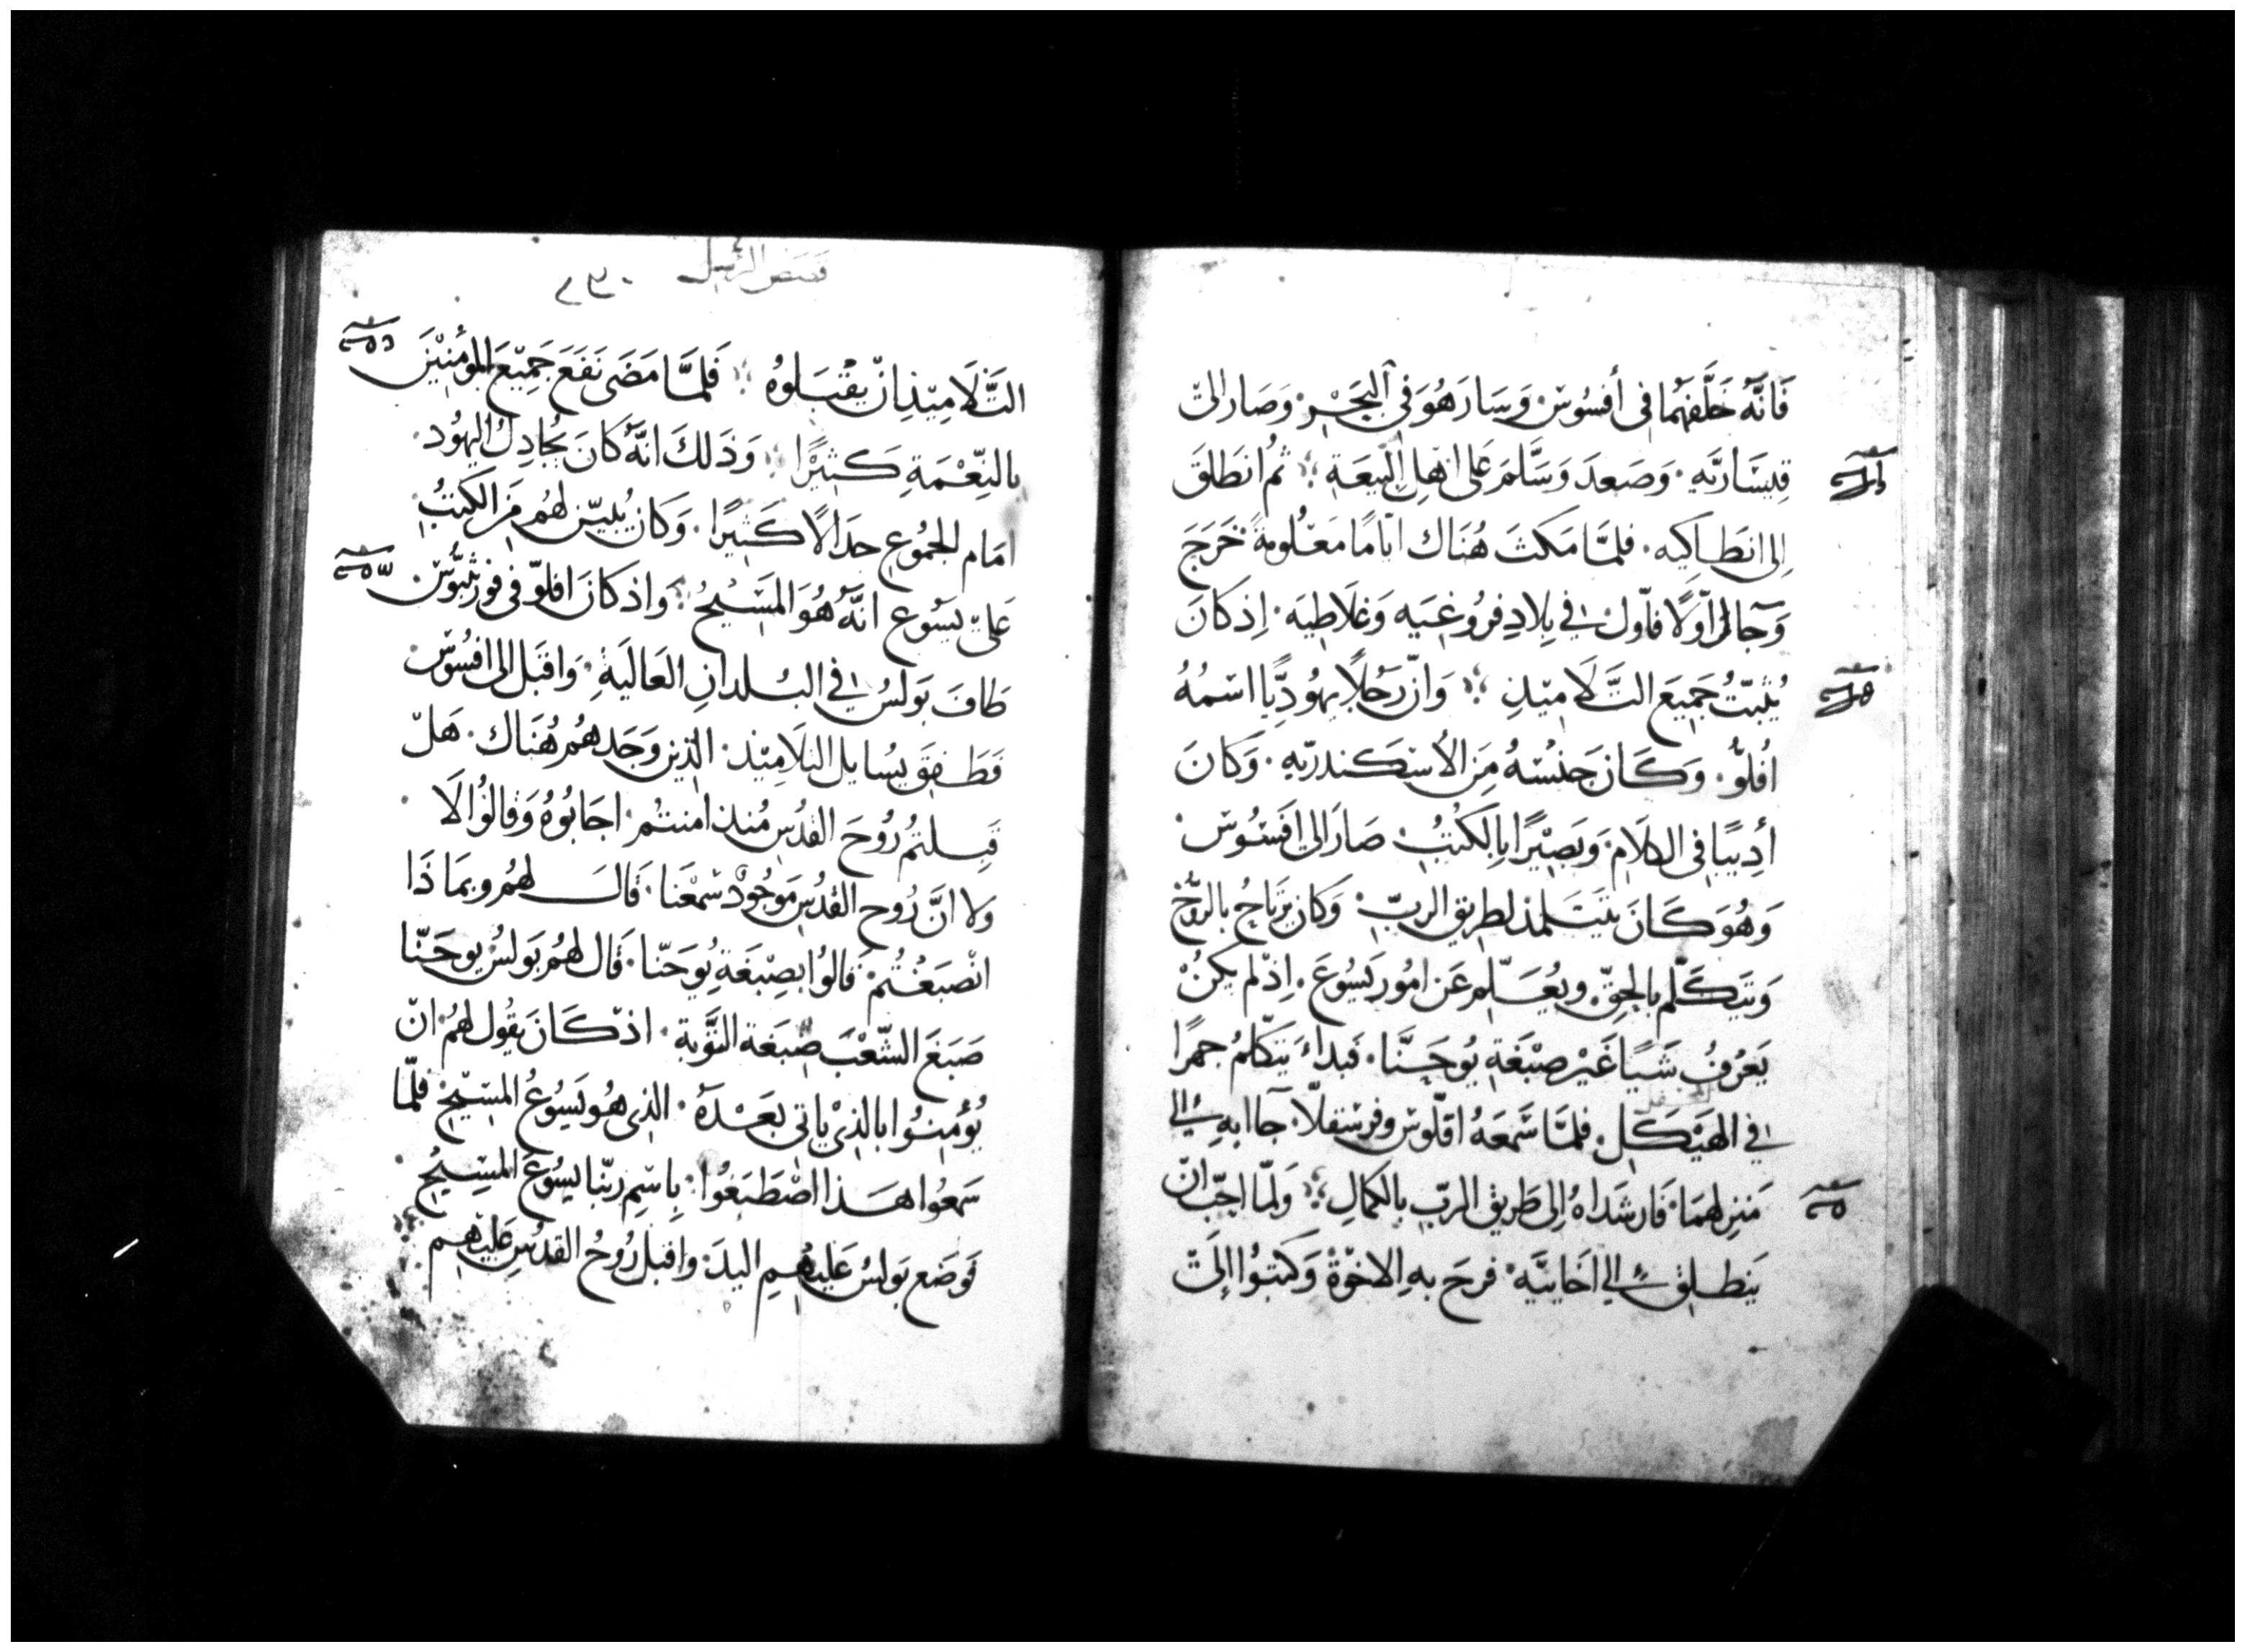 فَانَّهُ خَلَّفهُمَا فى أفسُوسْ وَسَارَ هُوَ فِي البَحْرِ وَصَار الىٰ
قِيسَاريَّهِ وَصَعدَ وَسَلَّمَ عَلى اهْلِ البِيعَةِ ثُم انطَلقَ
اِلى انطَاكِيه فلمَّا مَكثَ هُنَاك ايَّامًا مَعْلُومَةً خَرَجَ
وَجَال اَوّلًا فاَوّل فِي بِلَادِ فرُوغِيَه وَغلَاطِيَه اِذ كانَ
يُثبّتُ جَمِيعَ التَّلَامِيْذِ وَانّ رَجُلًا يهُوديًّا اسْمُهُ
اَفُلوُّ وَكَانَ جَنْسُهُ مِنَ الاسْكندريّهِ وَكَانَ
أدِيبًا فِى الكلَامِ وَبَصِيْرًا بِالكتُبْ صَارَ الى افَسُوسْ
وَهُوَ كَانَ يتَتَلمذ لطريق الربّ وَكان يَرْتاحُ بالرُوْح
وَيَتَكَلَّم بالحقّ ويُعَلّم عَن امُور يَسُوعَ اِذْ لم يَكنْ
يَعْرُفُ شَيًا غَيْر صِبْغَةِ يُوحَنَّا فَبدَاءَ يَتَكلّمُ جهرًا
فِي الهَيْكَل فلمَّا سَمعَهُ اقلّوس وفرسْقلّا جآا بهِ إلي
مَنزِلهمَا فَارشَدَاهُ إلى طَرِيق الربّ بالكمَالِ وَلمّا احَبّ انْ
يَنطلِق إلي اخَاييَّه فرحَ بهِ الاخوْةُ وَكتبُوا اِلىَ
قصص الرسل
التَّلَامِيْذِ انْ يقْبَلوهُ فَلمَّا مَضَى نَفَعَ جَمِيْعَ المؤمِنيْنَ
بالنِّعْمَةِ كَثِيْرًا وَذَلكَ انَّهُ كانَ يُجَادِلُ اليهُود
امَام الجمُوع جدَالًا كثِيْرًا وَكان يُبيّن لهُم مَن الكتُبْ
عَلىٰ يَسُوع انَّهُ هُوَ المَسْيحُ وَاذ كانَ افلوّ فى قورنثيوُّسْ
طَافَ بَولسُ فِي البُلدانِ العَاليَةِ وَاقبَل الى افسُوسْ
فَطَفِقَ يسُايل التلامِيْذ الذِين وَجَدهُمْ هُنَاك هَلْ
قَبِلتمُ رُوُحَ القدُس مُنذ امنتُمْ اجَابُوهُ وَقالوُا لَا
وَلا انَّ رُوح القدُس مَوجُودْ سَمعْنَا قَالَ لهُم وبمَا ذَا
انْصَبَغتُمْ قَالوُا بصِبْغَةِ يُوحَنّا قَال لهُم بَولسُ يوحَنّا
صَبَغَ الشّعْبَ صِبغَة التَّوبَة اذ كَانَ يَقُول لهُم انْ
يُؤمنُوا بالذِيْ يَاتى بعَدَهُ الذِى هُو يَسُوعُ المسِيْحُ فلمّا
سَمعُوا هَذا اصْطَبَغُوا بِاسْمِ رَبّنَا يسُوعَ المسِيحُ
فوَضَع بَولسُ عَليهُمِ اليَد وَاقبَلَ رُوحُ القدُس عَليهِم